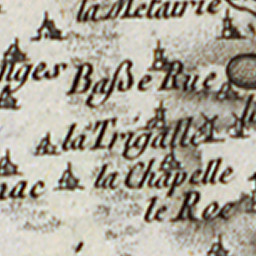 la Metairie
nges Baße Rue
la Trigalle
la Chapelle
nac
le Roc